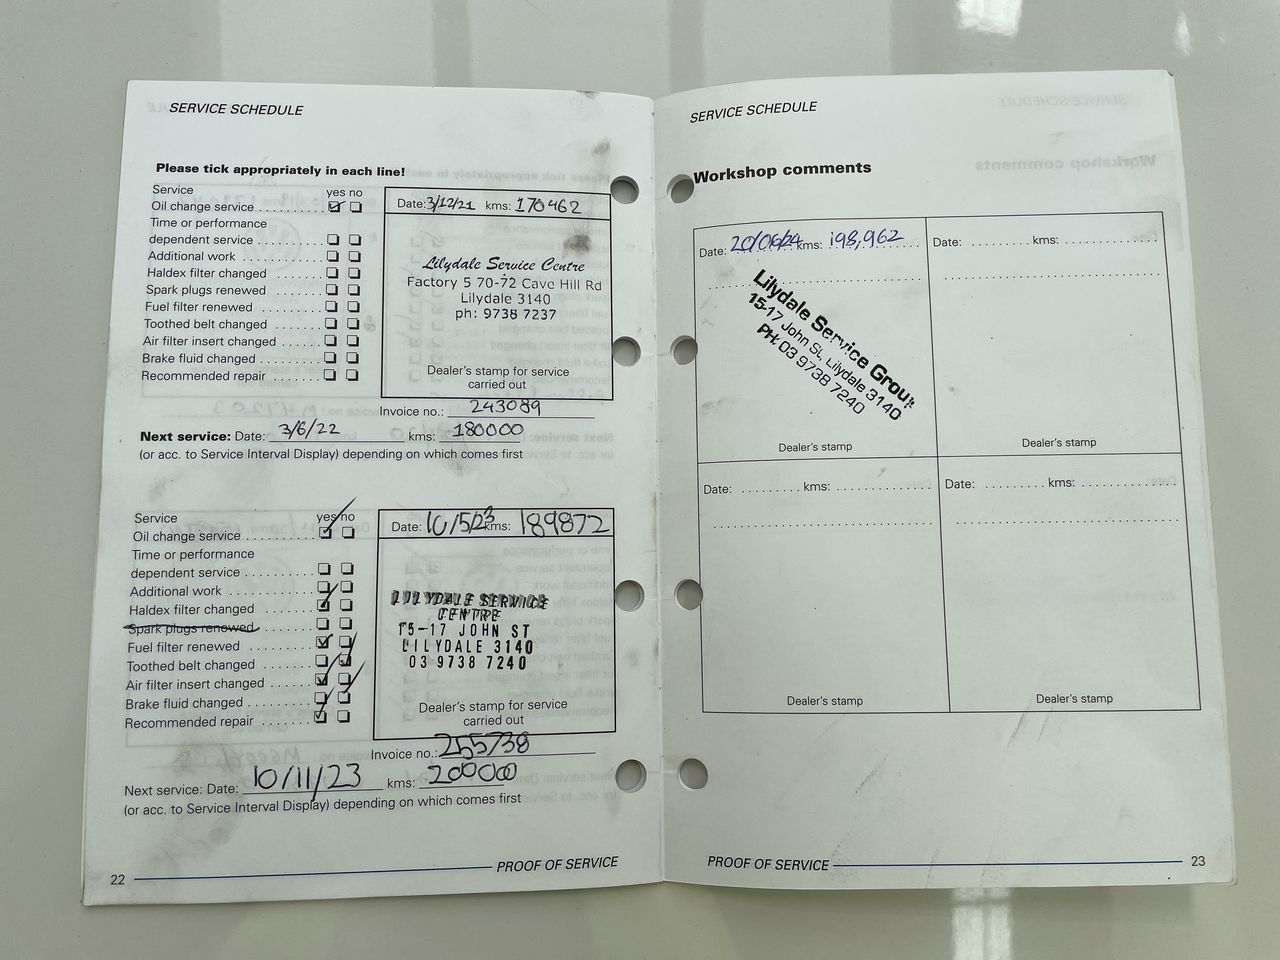 SERVICE SCHEDULE
Please tick appropriately in each line!
Service yes no
Oil change service
Time or performance
dependent service
Additional work
Haldex filter changed
Spark plugs renewed
Fuel filter renewed
Toothed belt changed
Air filter insert changed
Brake fluid changed
Recommended repair
Date: 3/12/21 kms: 170462
Lilydale Service Centre
Factory 5 70-72 Cave Hill Rd
Lilydale 3140
ph: 9738 7237
Dealer's stamp for service
carried out
Invoice no.: 243089
Next service: Date: 3/6/22 kms: 180000
(or acc. to Service Interval Display) depending on which comes first
Service yes no
Oil change service
Time or performance
dependent service
Additional work
Haldex filter changed
Spark plugs renewed
Fuel filter renewed
Toothed belt changed
Air filter insert changed
Brake fluid changed
Recommended repair
Date: 10/5/23 kms: 189872
LILYDALE SERVICE
CENTRE
15-17 JOHN ST
LILYDALE 3140
03 9738 7240
Dealer's stamp for service
carried out
Invoice no.: 255738
Next service: Date: 10/11/23 kms: 200000
(or acc. to Service Interval Display) depending on which comes first
22 PROOF OF SERVICE
SERVICE SCHEDULE
Workshop comments
Date: 20/06/24 kms: 198,962
Lilydale Service Group
15-17 John St, Lilydale 3140
PH: 03 9738 7240
Dealer's stamp
Date: kms:
Dealer's stamp
Date: kms:
Dealer's stamp
Date: kms:
Dealer's stamp
PROOF OF SERVICE 23